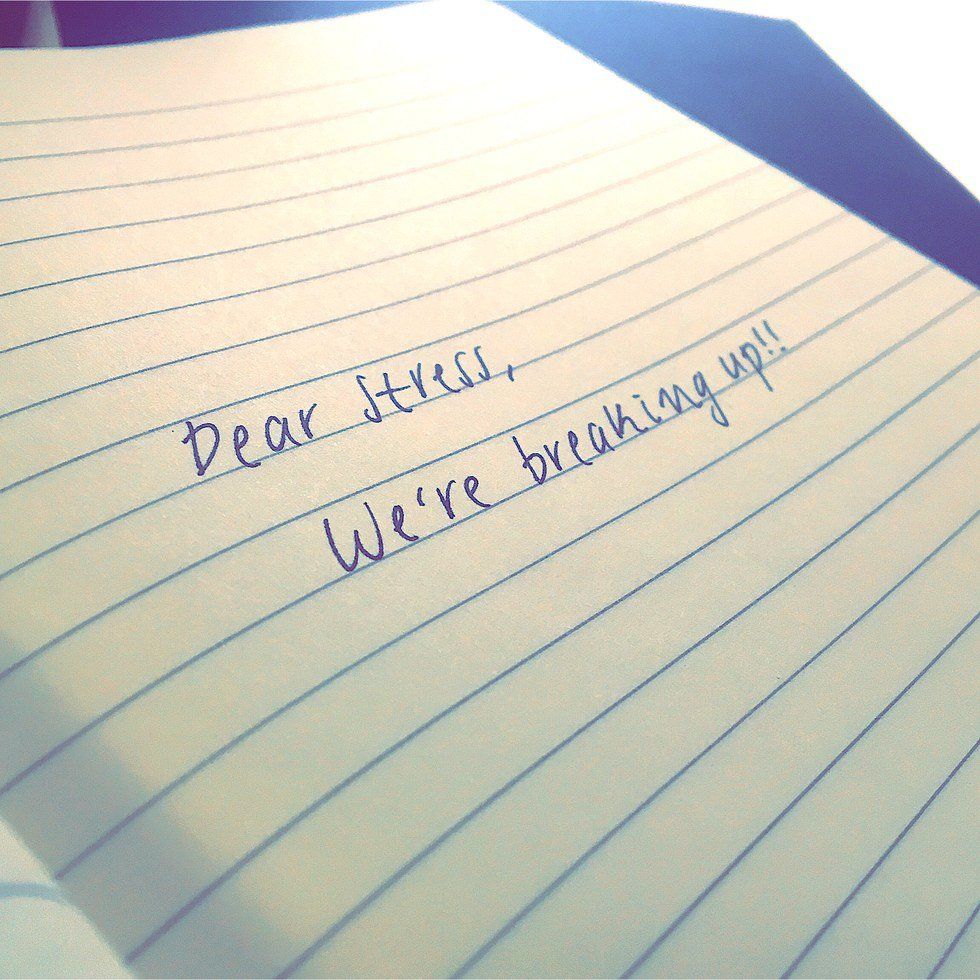 Dear stress,
We're breaking up!!